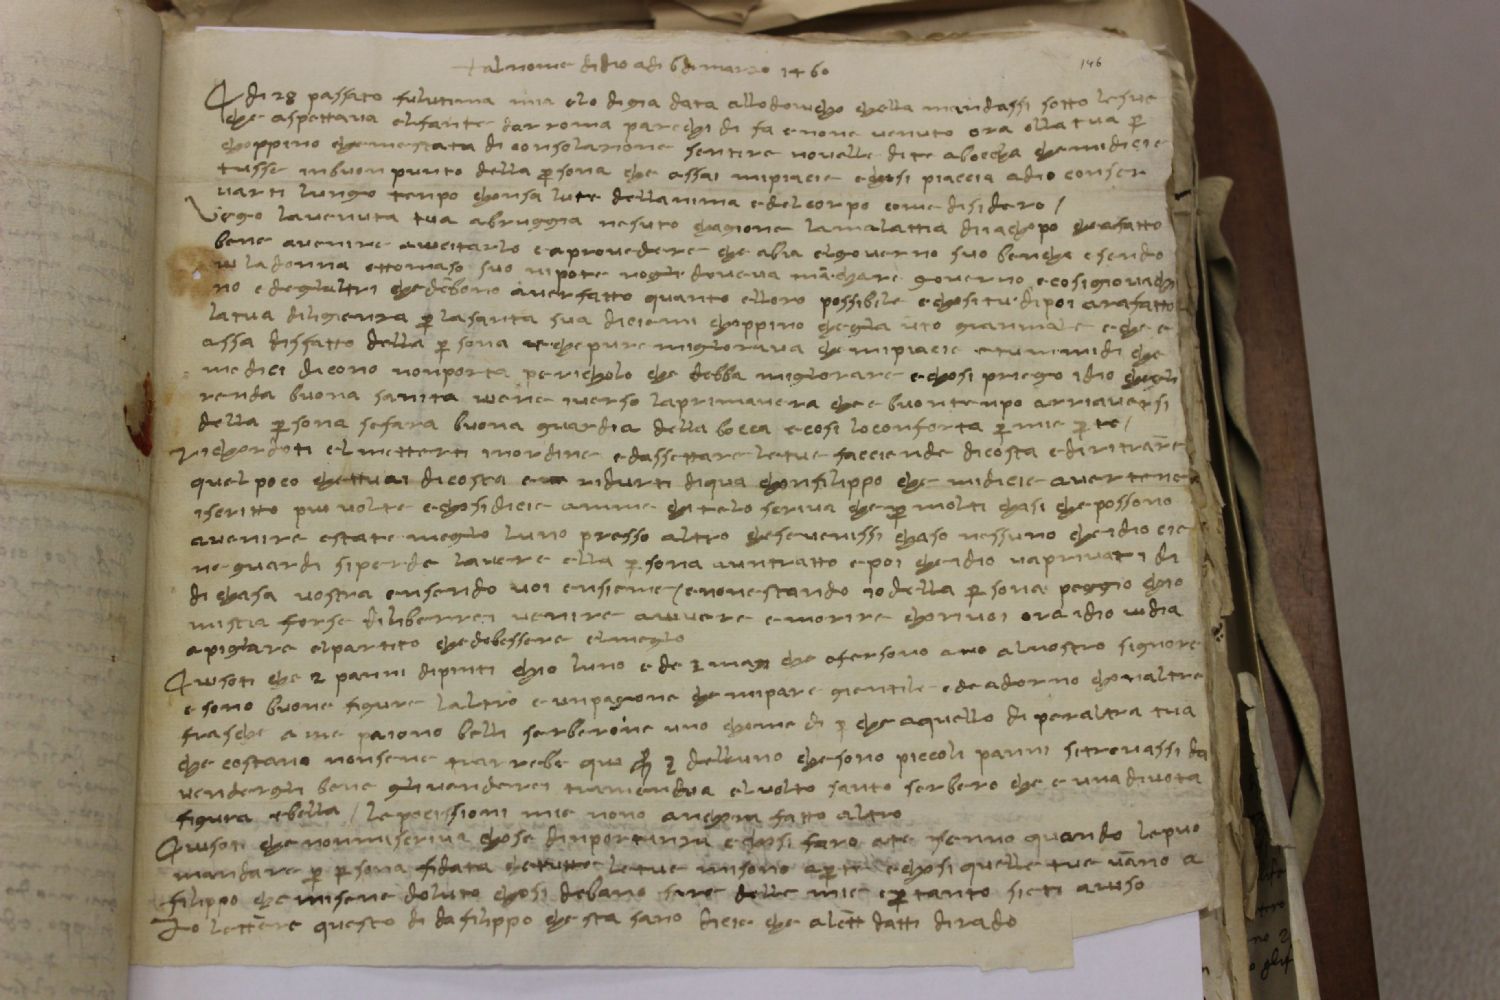 + al nome di dio a dì 6 di marzo 1460
146
A dì 28 passato fu lutima mia e lo di gia data allodovicho chella mandassi sotto le sue
che aspettava el fante da rroma parechi dì fa e none venuto ora o lla tua per
choppino che me stata di consolazione sentire novelle di te a boccha che mi dicie
tusse in buon punto della persona che assai mi piacie e chosi piaccia a dio conser
varti lungo tenpo chon salute dellanima e del corpo come disidero /
Vego la venuta tua a bruggia nesuto chagione la malattia di iachopo che a fatto
bene a venire a vicitarlo e a provedere che abia el governo suo benche esendo
vi la donna e ttomaso suo nipote no gli doveva manchare governo e cosi giovachi
no e degli altri che debono aver fatto quanto e lloro possibile e chosi tu dipoi arai fatto
la tua diligienza per la santa sua diciemi choppino che gli a uto gran male e che e
assa disfatto della persona e che pure migliorava che mi piacie e tu mi di che
medici dicono non porta pericholo che debba migliorare e chosi priegho idio che gli
renda buona sanita viene inverso la primavera che e buon tenpo a rriaversi
della persona se fara buona guardia della bocca e cosi lo conforta per mie parte /
Richordoti el metterti in ordine e dassettare le tue facciende di costa e di ritrarre
quel poco che ttu ai di costa e ridurti di qua chon filippo che mi dicie avertene
iscritto piu volte e chosi dicie a mme chi te lo scriva che per molti chasi che possono
avenire estate meglio luno presso altro che se venissi chaso nessuno che idio cie
ne guardi si perde lavere e lla persona a un tratto e poi che idio va privati di
di chasa vostra e usendo voi ensieme / e none stando io della persona peggio chio
mi stia forse diliberrei venire a vvere e morire chon voi ora idio vi dia
a pigliare el partito che debessere el meglio
Avisoti che 2 panni dipinti chio luno e de 3 magi che ofersono a no al nostro signore
e sono buone figure laltro e un pagone che mi pare gientile e de adorno chon altre
frasche a me paiono belli serberone uno chome di che a quello di per altra tua
che costava non sene trarrebe qui f 3 delluno che sono piccoli panni se trovassi da
vendergli bene gli venderei tramendua el volto santo serbero che e una divota
figura e bella / le posissioni mie nono anchora fatto altro
Avisoti che non mi scriva chose dinportanza e chosi faro a te senno quando le puo
mandare per persona fidata che tutte le tue mi sono aperte e chosi quelle tue vanno a
filippo che mi sene doluto chosi debano fare delle mie e per tanto sieti aviso
Io lettere questo dì da filippo che sta sano dicie che a lett datti di rado